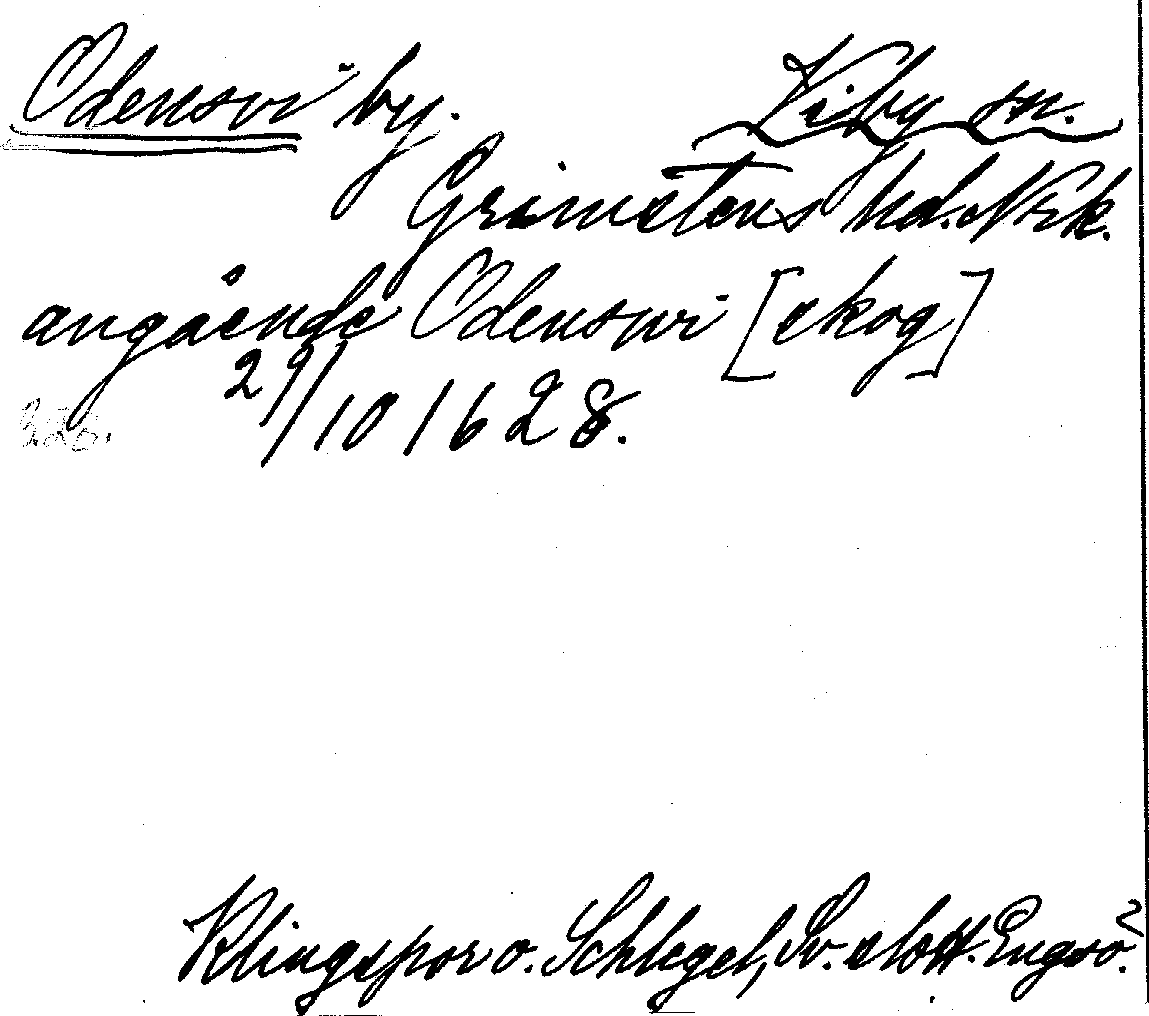 Odensvi by. Viby sn.
Grimstens hd. Nrk.
angående Odenswi [skog]
29/10 1628.
Klingspor o. Schlegel, Sv. slott. Engsö.